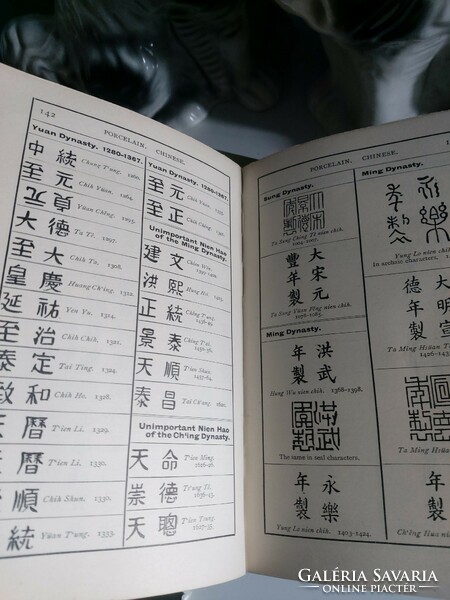 142
PORCELAIN. CHINESE.
Yuan Dynasty. 1280-1367.
中統 Chung T'ung. 1260.
至元 Chih Yüan.
貞 Yüan Chêng. 1295.
大德 Ta Tê. 1297.
至大 Chih Ta. 1308.
皇慶 Huang Ch'ing. 1312.
延祐 Yen Yu. 1314.
至治 Chih Chih. 1321.
泰定 Tai Ting. 1324.
致和 Chih Ho. 1328.
天曆 T'ien Li. 1329.
曆 T'ien Li. 1330.
順 Chih Shun. 1330.
統 Yüan T'ung. 1333.
Yuan Dynasty. 1280-1367.
至元 Chih Yüan.
至正 Chih Chêng.
Unimportant Nien Hao
of the Ming Dynasty.
建文 Chien Wên
洪熙 Hung Hsi
正統 Chêng T'ung.
景泰 Ching T'ai.
天順 T'ien Shun.
1457-64.
泰昌 Tai Ch'ang.
Unimportant Nien Hao
of the Ch'ing Dynasty.
天命 T'ien Ming.
1616-26.
崇德
天聰 T'ien Ts'ung.
1627-35.
PORCELAIN. CHINESE.
Sung Dynasty.
Ta Sung Ching Tê nien chih.
1004-1007.
大宋元
豐年製
Ta Sung Yüan Fêng nien chih.
1078-1085.
Ming Dynasty.
洪武
年製
Hung Wu nien chih. 1368-1398.
The same in seal characters.
永樂
年製
Yung Lo nien chih. 1403-1424.
Ming Dynasty.
永樂
年製
Yung Lo nien chih.
In archaic characters.
大明宣
德年製
Ta Ming Hsüan
1426-
Ta Ming Hsü
年製
Ch'êng Hua ni
GALÉRIA SAVARIA
ONLINE PIACTÉR